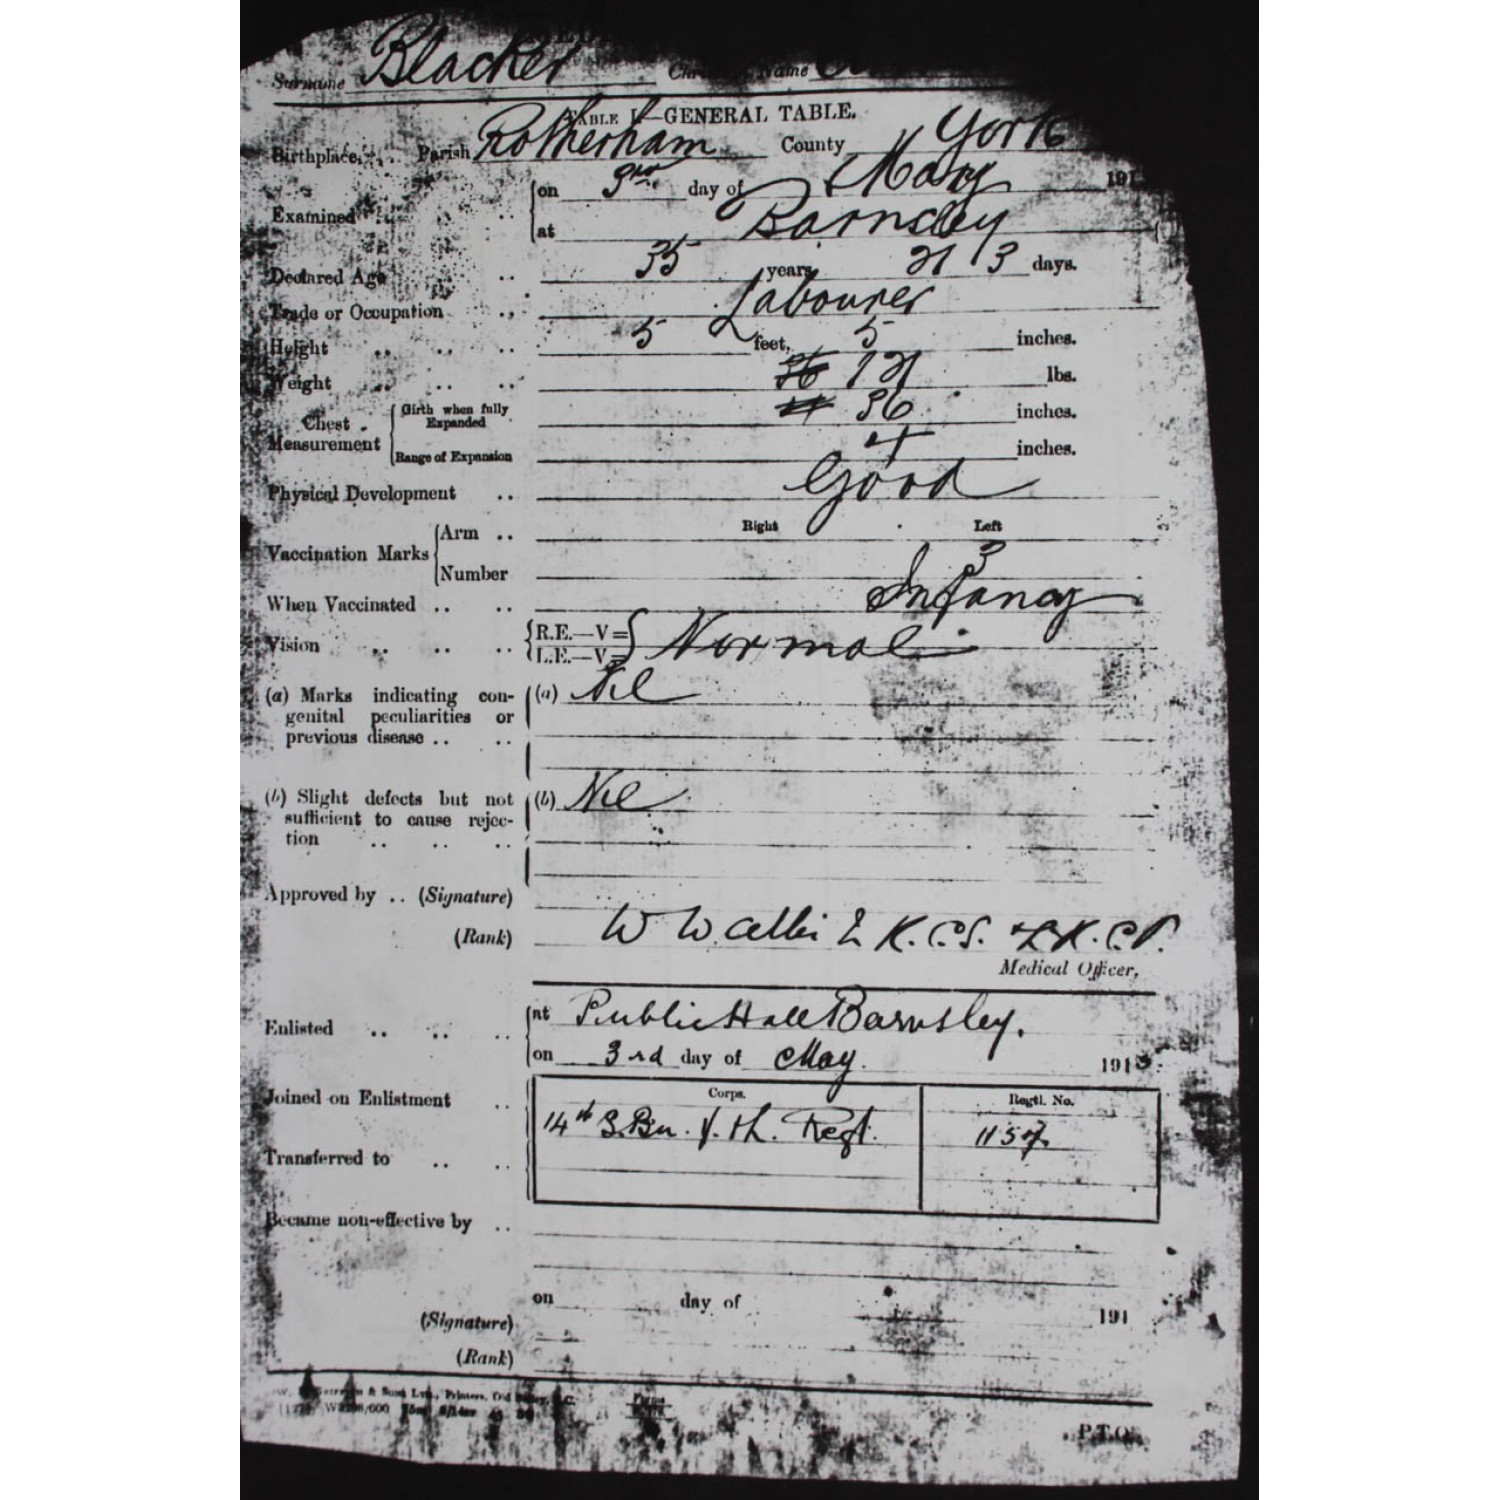 Surname Blacker Christian Name
TABLE I.—GENERAL TABLE.
Birthplace .. Parish Rotherham County York
Examined .. on 3rd day of May 191
at Barnsley
Declared Age .. 35 years 213 days.
Trade or Occupation .. Labourer
Height .. .. .. 5 feet, 5 inches.
Weight .. .. .. 36 121 lbs.
Chest Measurement Girth when fully Expanded 4 36 inches.
Range of Expansion 4 inches.
Physical Development .. Good
Right Left
Vaccination Marks Arm ..
Number 3
When Vaccinated .. .. Infancy
Vision .. .. .. R.E.—V= Normal
L.E.—V=
(a) Marks indicating con- (a) Nil
genital peculiarities or
previous disease .. ..
(b) Slight defects but not (b) Nil
sufficient to cause rejec-
tion .. .. ..
Approved by .. (Signature)
(Rank) W W L.R.C.S. L.R.C.P.
Medical Officer,
Enlisted .. .. .. at Public Hall Barnsley.
on 3rd day of May. 1915
Corps. Regtl. No.
Joined on Enlistment .. 14th S.Bn. Y. & L. Regt. 1157
Transferred to .. ..
Became non-effective by ..
on day of 191
(Signature)
(Rank)
& Sons Ltd., Printers, Old
P.T.O.